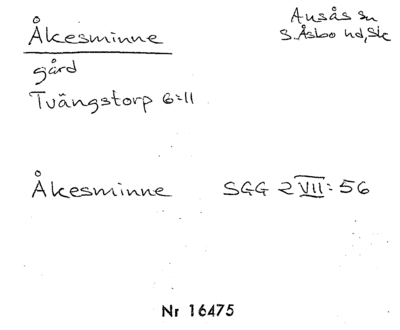 Åkesminne
Ausås sn
S. Åsbo hd, Sk
gård
Tvängstorp 6:11
Åkesminne SGG 2 VII: 56
Nr 16475